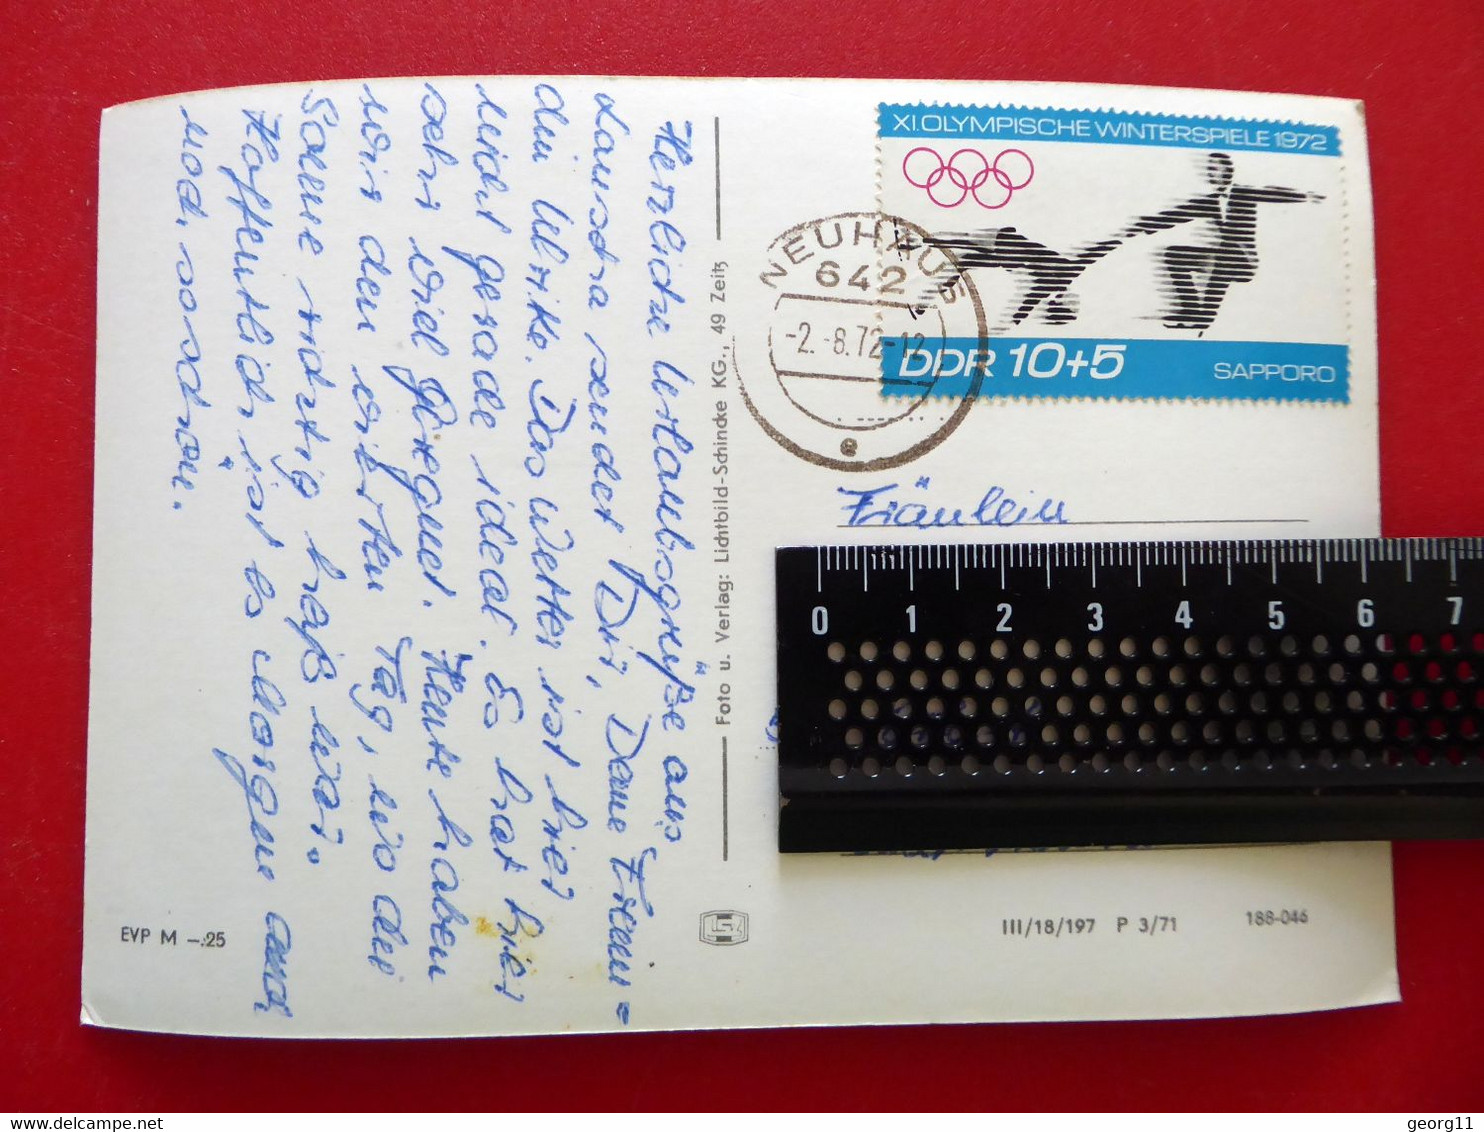 Herzliche Urlaubsgrüße aus
sendet Dir, Deine Freun=
din Ulrike. Das Wetter ist hier
nicht gerade ideal. Es hat hier
sehr viel geregnet. Heute haben
wir den ersten Tag, wo die
Sonne richtig heiß war.
Hoffentlich ist es Morgen auch
noch so schön.
EVP M -.25
Foto u. Verlag: Lichtbild-Schincke KG., 49 Zeitz
XI. OLYMPISCHE WINTERSPIELE 1972
DDR 10+5
SAPPORO
NEUHAUS
642
-2.-8.72-12
e
Fräulein
0 1 2 3 4 5 6 7
III/18/197 P 3/71
188-046
delcampe.net
georg11